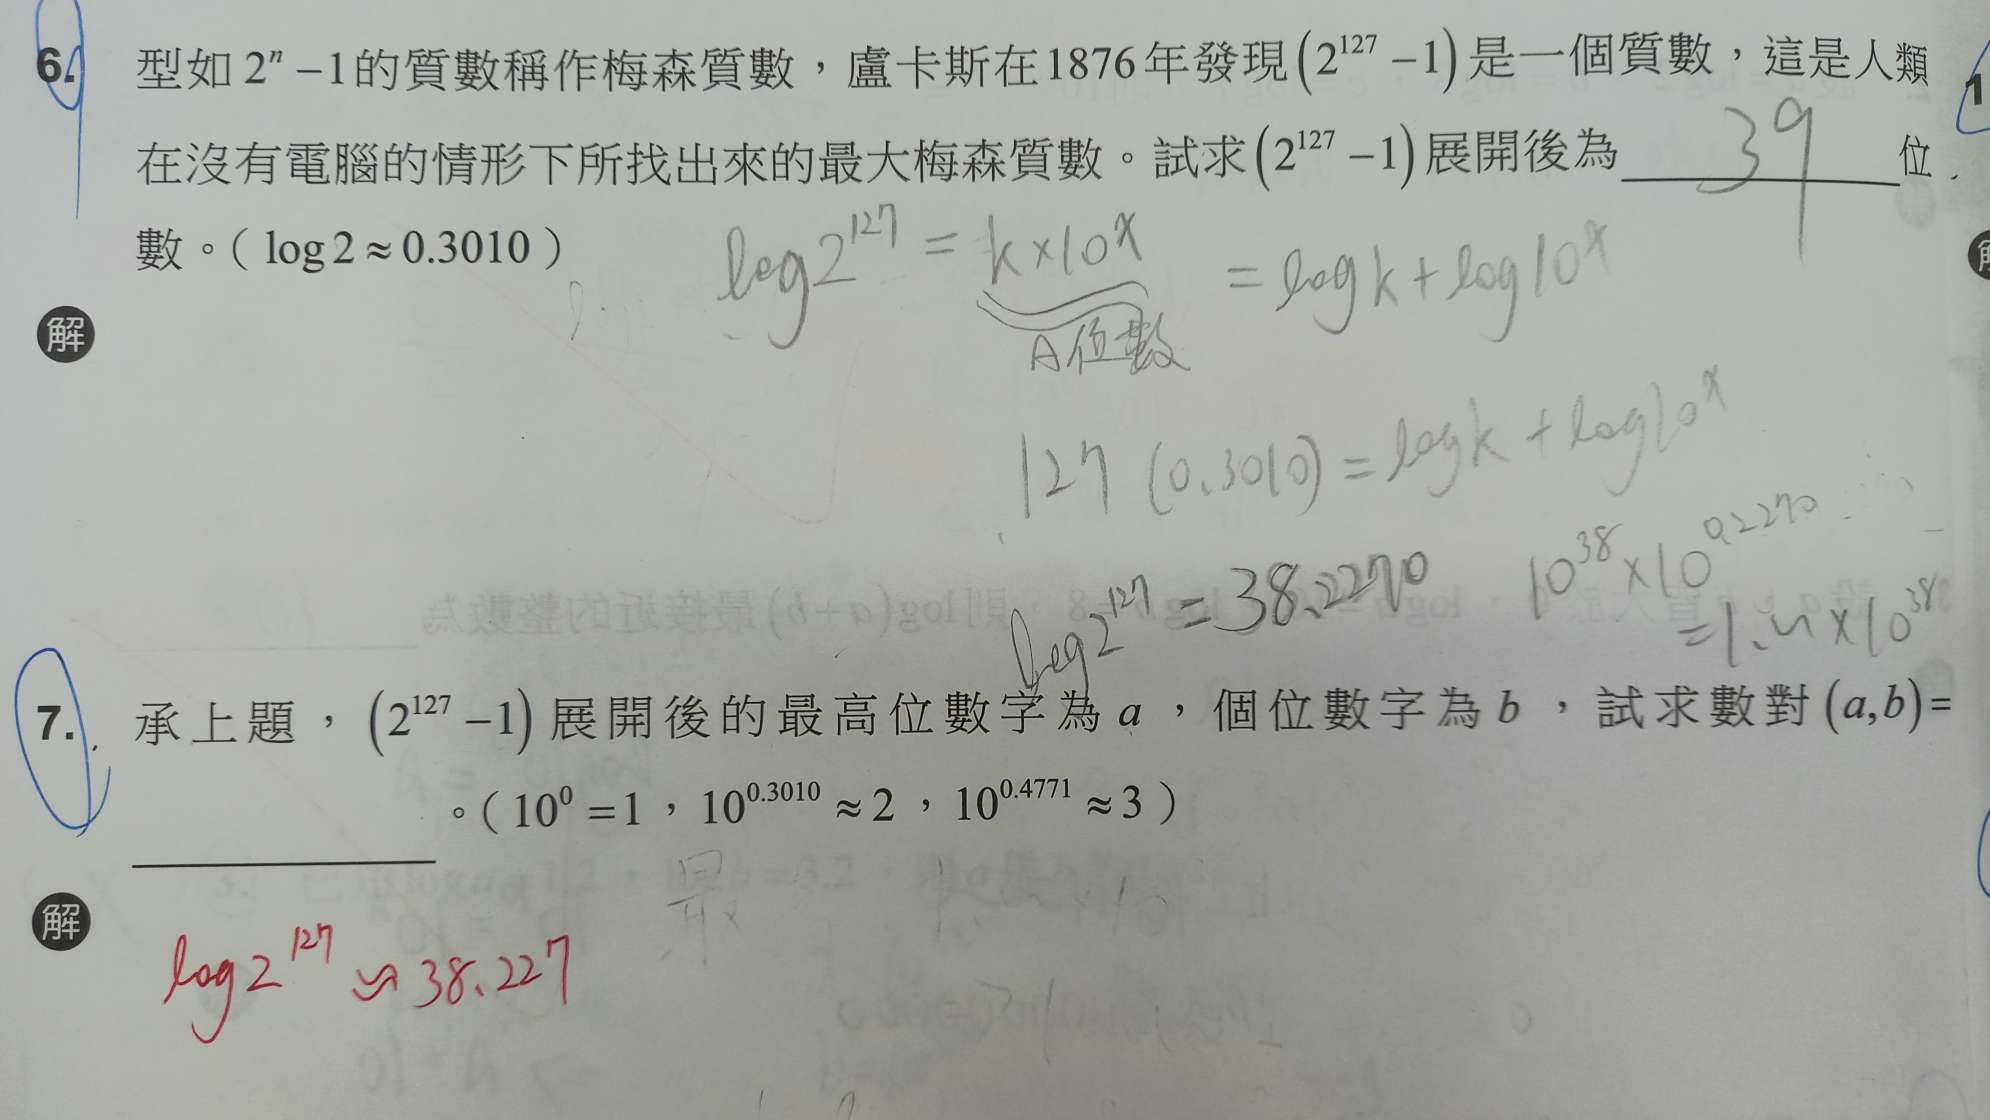 6. 型如 2ⁿ −1的質數稱作梅森質數，盧卡斯在1876年發現(2¹²⁷ −1)是一個質數，這是人類
在沒有電腦的情形下所找出來的最大梅森質數。試求(2¹²⁷ −1)展開後為 39 位
數。( log2≈0.3010 )
log2¹²⁷ = k×10ˣ = logk+log10ˣ
A位數
解
127 (0.3010) = logk + log10ˣ
log2¹²⁷ = 38.2270
10³⁸×10^0.2270
=1.~×10³⁸
7. 承上題，(2¹²⁷ −1)展開後的最高位數字為 a ，個位數字為 b ，試求數對(a,b)=
。( 10⁰ =1，10^0.3010 ≈2，10^0.4771 ≈3 )
解
log2¹²⁷ ≈ 38.227